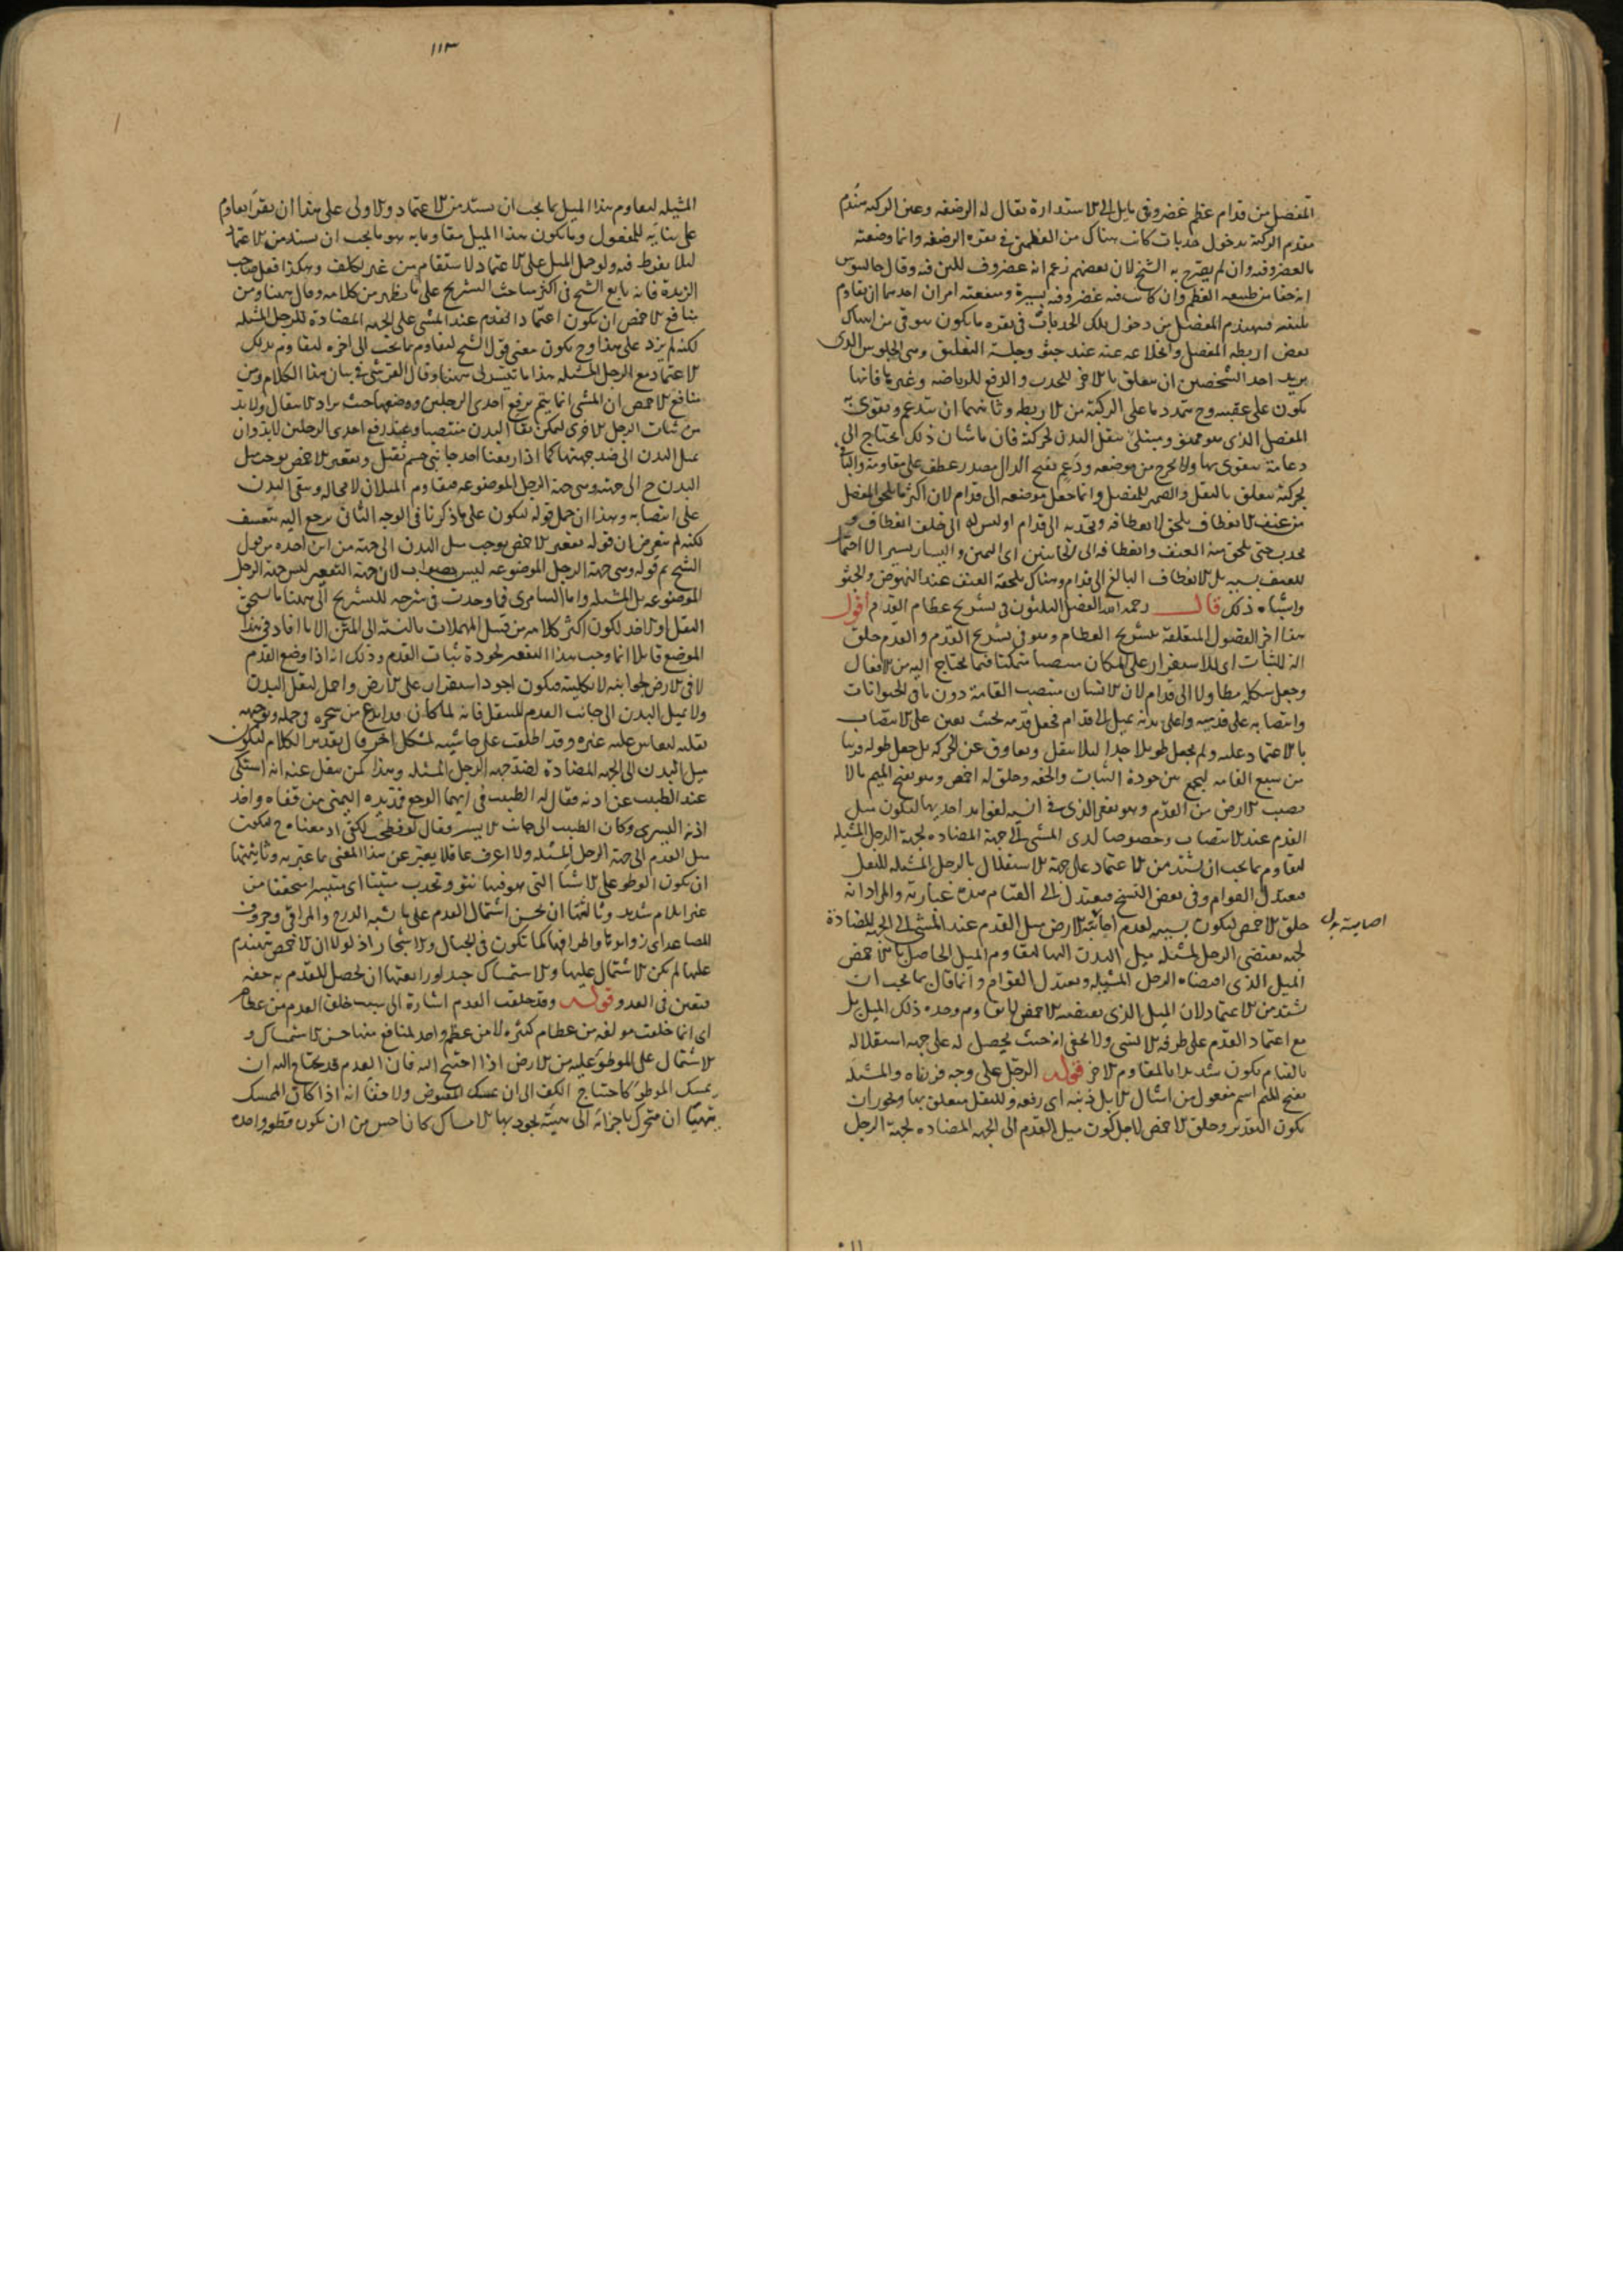 المفصل من قدام عظم غضروفي مايل الى الاستدارة يقال له الرضفه وعين الركبه
مقدم الركبة بدخول حدبات كانت هناك من العظمين في نقره الرضفه وانما وضعته
بالغضروفيه وان لم يصرح به الشيخ لان بعضهم زعم انه غضروف للين فيه وقال جالينوس
انه حقا من طبيعه العظم وان كانت فيه غضروفيه يسيرة ومنفعته امران احدهما ان يقاوم
المفصل من دخول تلك الحدبات في نقره ما يكون هو في من
بعض اربطه المفصل وانخلاعه عنه عند جثو وجلسة التعلق وهى الجلوس الذى
يريد احد الشخصين ان يتعلق بالاخر للجذب والدفع للرياضه وغيرها فانها
تكون على عقبيه وح تتمدد ما على الركبة من الاربطه وثانيهما ان تدعم وتقوى
المفصل الذى هو ممنو ومبتلى بثقل البدن لحركته فان ما شان ذلك يحتاج الى
دعامة يتقوى بها ولا يخرج من موضعه ودعم بفتح الدال مصدر عطف على مقاومة والباء
بحركته متعلق بالثقل والضمير للمفصل وانما جعل موضعه الى قدام لان اكثر ما يلحق المفصل
من عنف الانعطاف يلحق لانعطافه وتحدبه الى قدام اذ ليس له الى خلف انعطاف و
تحدب حتى يلحق منه العنف وانعطافه الى الجانبين اى اليمين واليسار يسير
للعنف بسببه بل الانعطاف البالغ الى قدام وهناك يلحقه العنف عند النهوض والجثو
واشباه ذلك قال رحمه الله الفصل الثلثون في تشريح عظام القدم اقول
هذا اخر الفصول المتعلقة بتشريح العظام وهو في تشريح القدم والقدم خلق
الة للثبات اى للاستقرار على المكان منتصبا متمكنا فيما يحتاج اليه من الافعال
وجعل شكله مطاولا الى قدام لان الانسان منتصب القامة دون باقى الحيوانات
وانتصابه على قدميه واعلى بدنه يميل الى قدام فجعل قدمه بحيث يعين على الانتصاب
بالاعتماد عليه ولم يجعل طويلا جدا ليلا يثقل ويعاوق عن الحركه بل جعل طوله قريبا
من سبع القامه ليجمع بين جودة الثبات والخفه وخلق له اخمص وهو بفتح الميم ما لا
يصيب الارض من القدم وهو تقعر الذى في انسيه لفوايد احديها ليكون ميل
القدم عند الانتصاب وخصوصا لدى المشى الى جهة المضاده لجهة الرجل المشيله
ليقاوم بما يجب ان يشتد من الاعتماد على جهة الاستقلال بالرجل المشيله للنقل
فيعتدل القوام وفي بعض النسخ فيعتدل الى القيام هذه عبارته والمراد انه
خلق الاخمص ليكون بسببه لعدم اصابته الارض ميل القدم عند المشى الى الجهه المضادة
اصابته
لجهة يقتضى الرجل المشيله ميل البدن اليها ليقاوم الميل الحاصل بالاخمص
الميل الذى اقتضاه الرجل المشيله ويعتدل القوام وانما قال بما يجب ان
يشتد من الاعتماد لان الميل الذى يقتضيه الاخمص لا يقاوم وحده ذلك الميل بل
مع اعتماد القدم على طرفه الانسى ولا يخفى انه حيث يحصل له على جهة استقلاله
بالقيام يكون شديدا بالمقاوم الاخر قوله الرجل على وجه قررناه والمشيله
بفتح الميم اسم مفعول من اشال الابل ذنبه اى رفعه وللنقل متعلق بها ويجوز ان
يكون التقدير وخلق الاخمص لاجل كون ميل القدم الى الجهه المضاده لجهة الرجل
١١٣
المشيله ليقاوم هذا الميل بما يجب ان يشتد من الاعتماد والاولى على هذا ان يقرا يقاوم
على بنائه للمفعول ويكون هذا الميل مقاوما به هو ما يجب ان يشتد من الاعتماد
ليلا يفرط فيه ولو حمل الميل على الاعتماد لاستقام من غير تكلف وهكذا فعل صاحب
الزبدة فانه تابع الشيخ في اكثر مباحث التشريح على ما يظهر من كلامه وقال ههنا ومن
منافع الاخمص ان يكون اعتماد القدم عند المشى على الجهه المضادة للرجل المشيله
لكنه لم يزد على هذا وح يكون معنى قول الشيخ ليقاوم بما يجب الى اخره ليقاوم بذلك
الاعتماد مع الرجل المشيله هذا ما تيسر لى ههنا وقال القرشى في بيان هذا الكلام ومن
منافع الاخمص ان المشى انما يتم برفع احدى الرجلين ووضعها حيث يراد الانتقال ولا بد
من ثبات الرجل الاخرى ليمكن بقاء البدن منتصبا وعند رفع احدى الرجلين لا بد وان
يميل البدن الى ضد جهتها كما اذا رفعنا احد جانبى جسم ثقيل وتقعير الاخمص يوجب ميل
البدن ح الى جهته وهى جهة الرجل الموضوعه فيقاوم الميلان لا محاله ويبقى البدن
على انتصابه وهذا ان حمل قوله ليكون على ما ذكرنا في الوجه الثانى يرجع اليه بتعسف
لكنه لم يتعرض ان قوله تقعير الاخمص يوجب ميل البدن الى جهته من اين اخذه من قول
الشيخ ثم قوله وهى جهة الرجل الموضوعه ليس بصواب لان جهة التقعير ليس جهة الرجل
الموضوعه بل المشيله واما السامرى فما وجدت في شرحه للتشريح الى ههنا ما يستحق
النقل او الاخذ لكون اكثر كلامه من قبيل المهملات بالنسبة الى المتن الا ما افاد في هذا
الموضع قايلا انما وجب هذا التقعير لجودة ثبات القدم وذلك انه اذا وضع القدم
لا في الارض بجوانبه لا بكليته فيكون اجود استقرار على الارض واحمل لثقل البدن
ولا يميل البدن الى جانب القدم للسفل فانه لما كان
نقله ليقاس عليه غيره وقد اطلعت على حاشيه لمشكل اخر قال تقدير الكلام ليكون
ميل البدن الى الجهه المضادة لضد جهه الرجل المشيله وهذا كمن ينقل عنه انه اشتكى
عند الطبيب عن اذنه فقال له الطبيب في ايهما الوجع فمد يده اليمنى من قفاه واخذ
اذنه اليسرى وكان الطبيب الى جانب الايسر فقال
ميل القدم الى جهة الرجل المشيله ولا اعرف عاقلا يعبر عن هذا المعنى بما عبر به وثانيتها
ان يكون الوطو على الاشيا التى هو فيها نتو وتحدب متينا اى متيسرا متحققا من
غير ايلام شديد وثالثتها ان يحسن اشتمال القدم على ما يشبه الدرج والمراقى وحروف
المصاعد اى زواياها واطرافها كما تكون في الجبال والاشجار اذ لولا ان الاخمص ينهدم
عليها لم يكن الاشتمال عليها والاستمساك جيدا ورابعتها ان يحصل للقدم به خفه
فتعين في العدو قوله وقد خلقت القدم اشارة الى سبب خلق القدم من عظام
اى انما خلقت مولفه من عظام كثيره لا من عظم واحد لمنافع منها حسن الاستمساك و
الاشتمال على الموطوء عليه من الارض اذا احتيج اليه فان القدم قد يحتاج اليه ان
يمسك الموطوء كاحتياج الكف الى ان يمسك المقبوض ولا خفاء انه اذا كان الممسك
يتهيا ان يتحرك باجزائه الى هيئة يجود بها الامساك كان احسن من ان يكون قطعه واحده